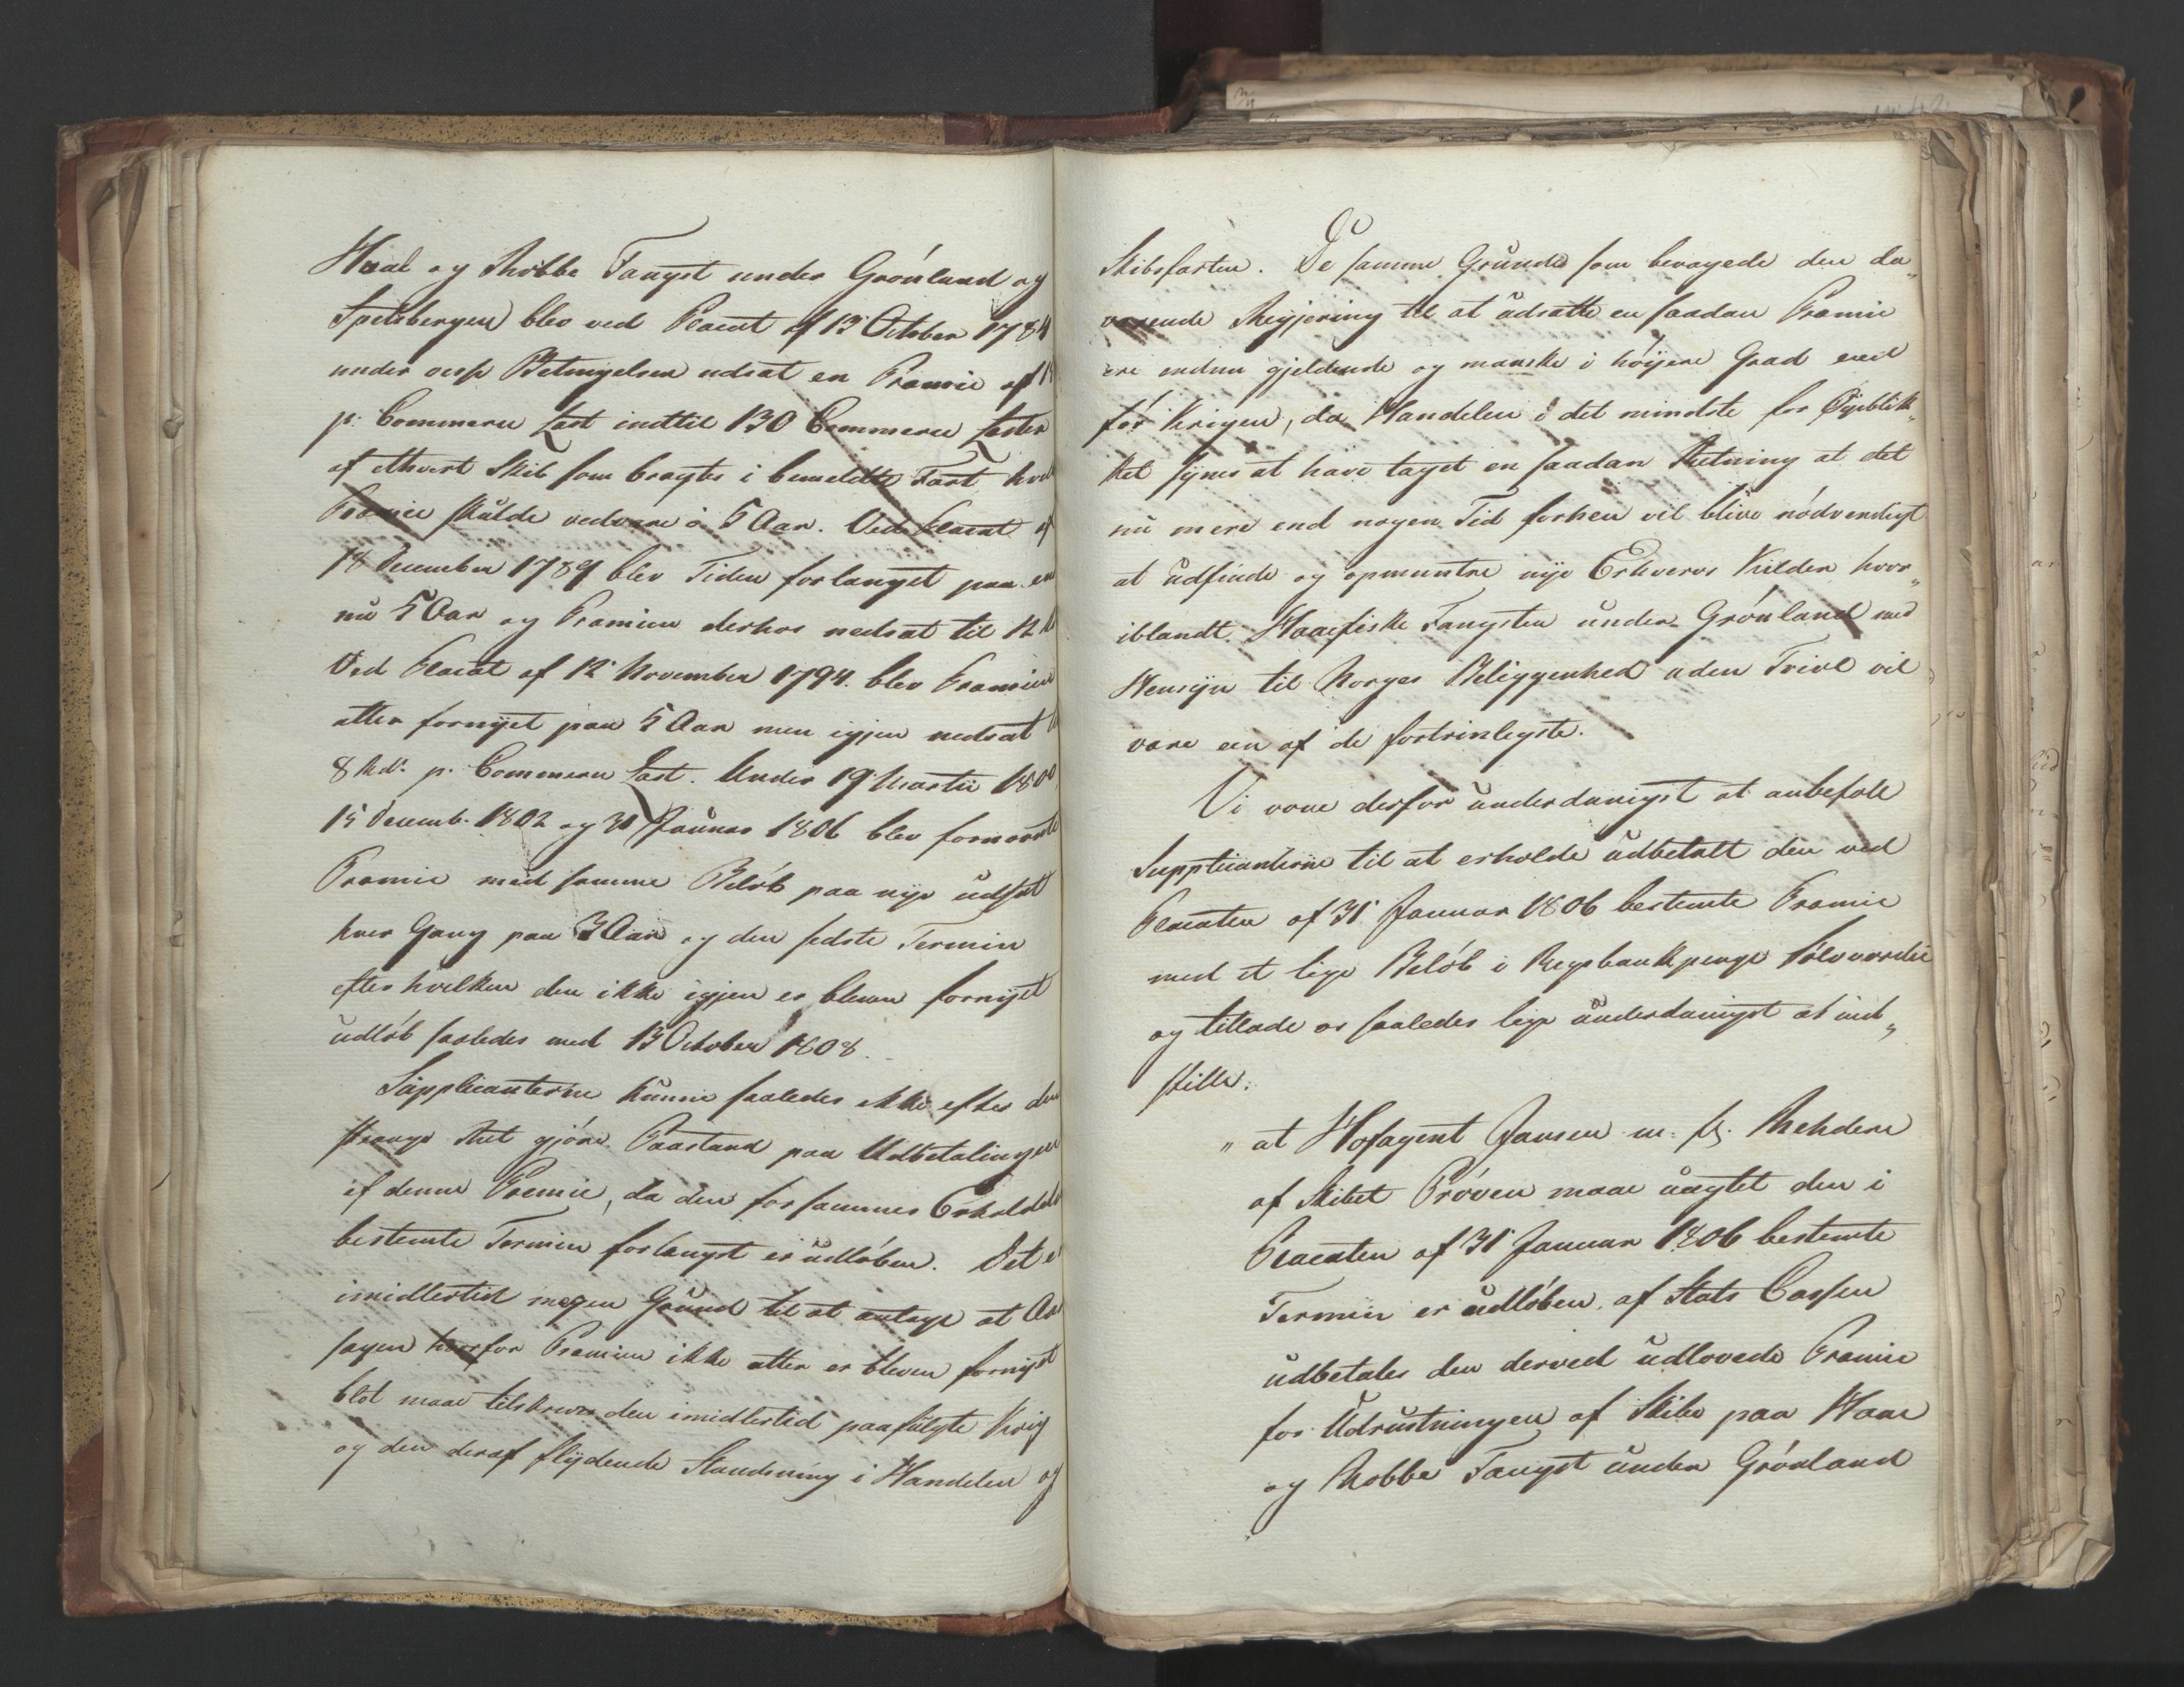 Hval og Robbe Fangst under Grönland og
Spitsbergen blev ved Placat af 13 October 1784
under visse Betingelser udsat en Præmie af 15
p: Commerce Læst indtil 130 Commerce Læster
af ethvert Skib som bragtes i bemeldte Fart hvil
Præmie skulde vedvare i 5 Aar. Ved Placat af
18 December 1789 blev Tiden forlænget paa en
nu 5 Aar og Præmien derhos nedsat til 12 Rd
Ved Placat af 12 November 1794. blev Præmien
atter fornyet paa 5 Aar men igjen nedsat til
8 Rdr. p. Commerce Læst. Under 19 Martii 1800,
15 Decemb. 1802 og 31 Januar 1806 blev fornævnte
Præmie med samme Belöb paa nye udsat
hver Gang paa 3 Aar og den sidste Termin
efter hvilken den ikke igjen er bleven fornyet
udlöb saaledes med 13 October 1808.
Supplicanterne kunne saaledes ikke efter den
strænge Ret gjöre Paastand paa Udbetalingen
af denne Præmie, da den for sammes Erholdelse
bestemte Termin forlængst er udlöben. Det er
imidlertid megen Grund til at antage at Aar
sagen hvorfor Præmien ikke atter er bleven fornyet
blot maae tilskrives den imidlertid paafulgte Krig
og den deraf flydende Standsning i Handelen og
Skibsfarten. De samme Grunde som bevægede den da„
værende Regjering til at udsætte en saadan Præmie
ere endnu gjeldende og maaske i höyere Grad end
för Krigen, da Handelen i det mindste for Öyeblik„
ket synes at have taget en saadan Retning at det
nu mere end nogen Tid forhen vil blive nödvendigt
at udfinde og opmuntre nye Erhvervs Kilder hvor„
iblandt Hvalfiske Fangsten under Grönland med
Hensyn til Norges Beliggenhed uden Tvivl vil
være een af de fortrinligste.
Vi vove derfor underdanigst at anbefale
Supplicanterne til at erholde udbetalt den ved
Placaten af 31 Januar 1806 bestemte Præmie
med et lige Belöb i Rigsbankpenge Sölvværdie
og tillade os saaledes lige underdanigst at ind„
stille:
„ at Hofagent Jansen m: fl. Rehdere
af Skibet Pröven maae uagtet den i
Placaten af 31 Januar 1806 bestemte
Termin er udlöben, af Stats Cassen
udbetales den derved udlovede Præmie
for Udrustningen af Skibe paa Hval
og Robbe Fangst under Grönland